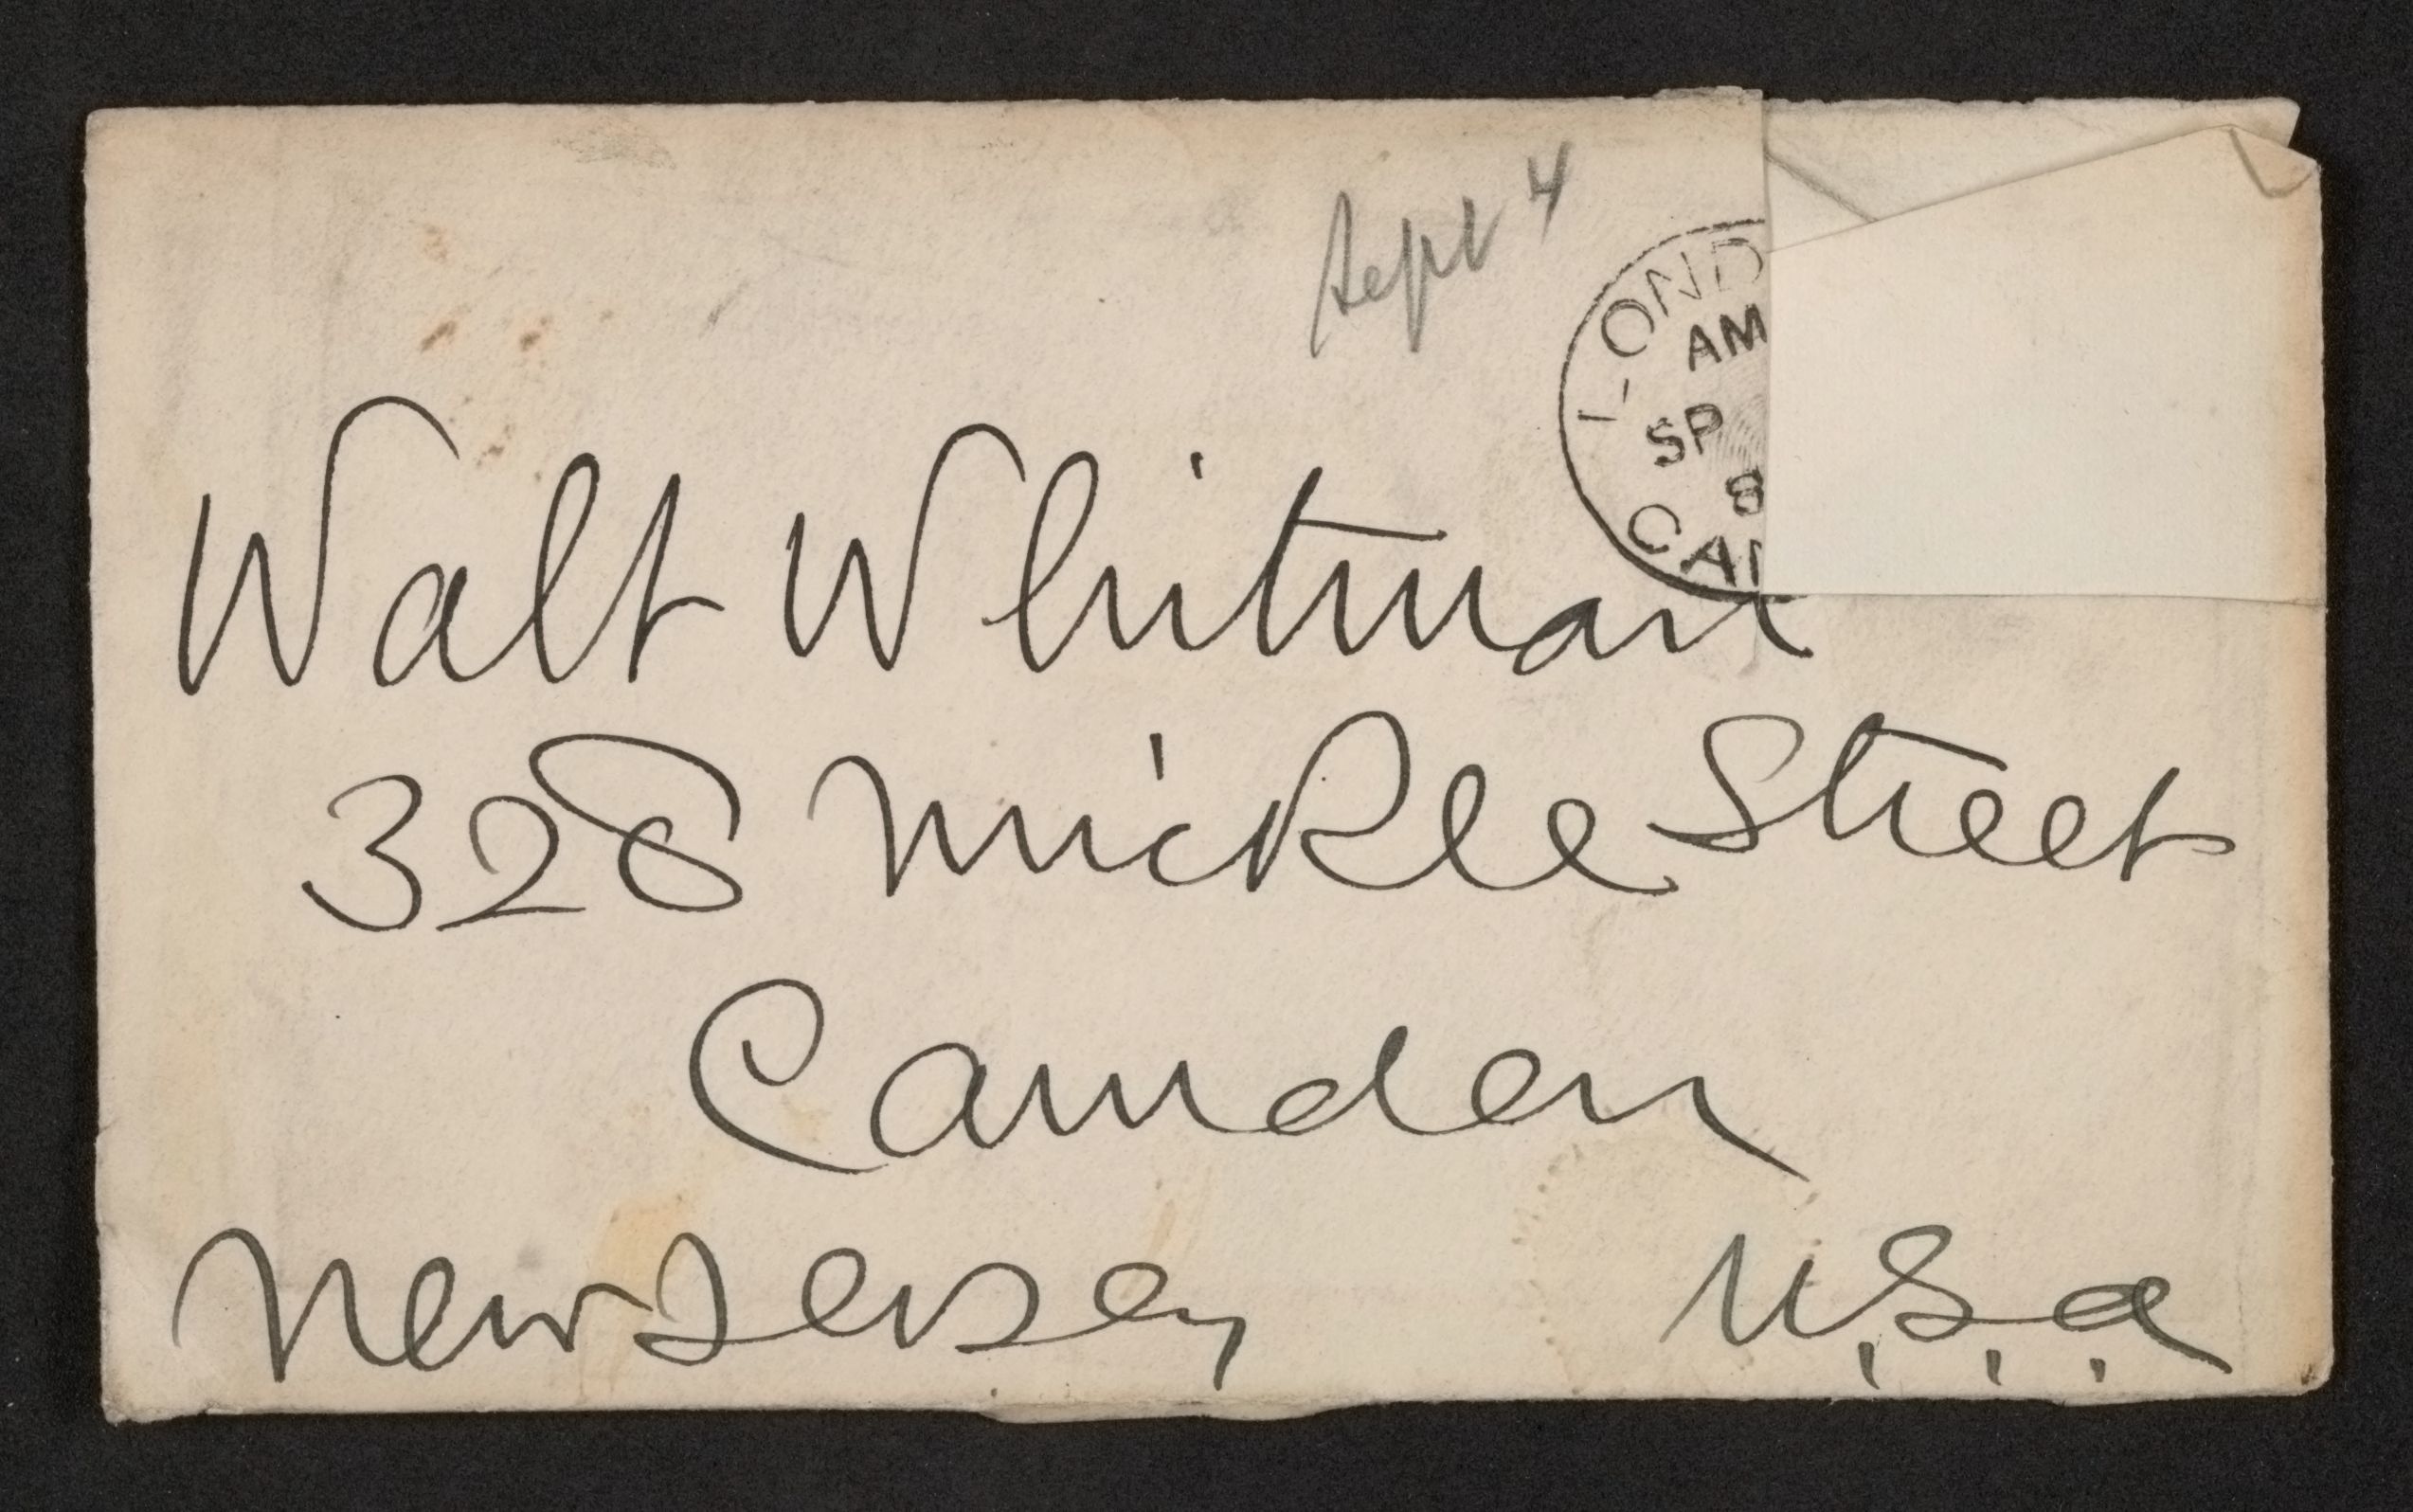 Sept 4
LOND
AM
SP
8
CA
Walt Whitman
328 Mickle Street
Camden
New Jersey U.S.a